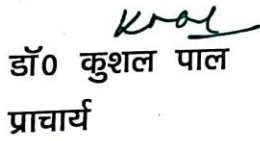 डॉ0 कुशल पाल
प्राचार्य